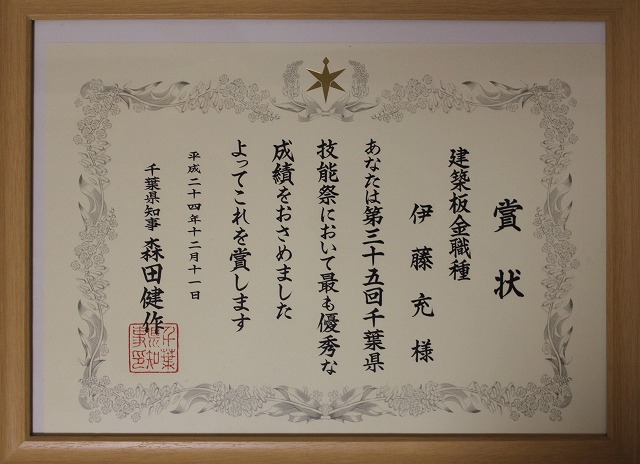 賞状
建築板金職種
伊藤充様
あなたは第三十五回千葉県
技能祭において最も優秀な
成績をおさめました
よってこれを賞します
平成二十四年十二月十一日
千葉県知事 森田健作
千葉
県知
事印